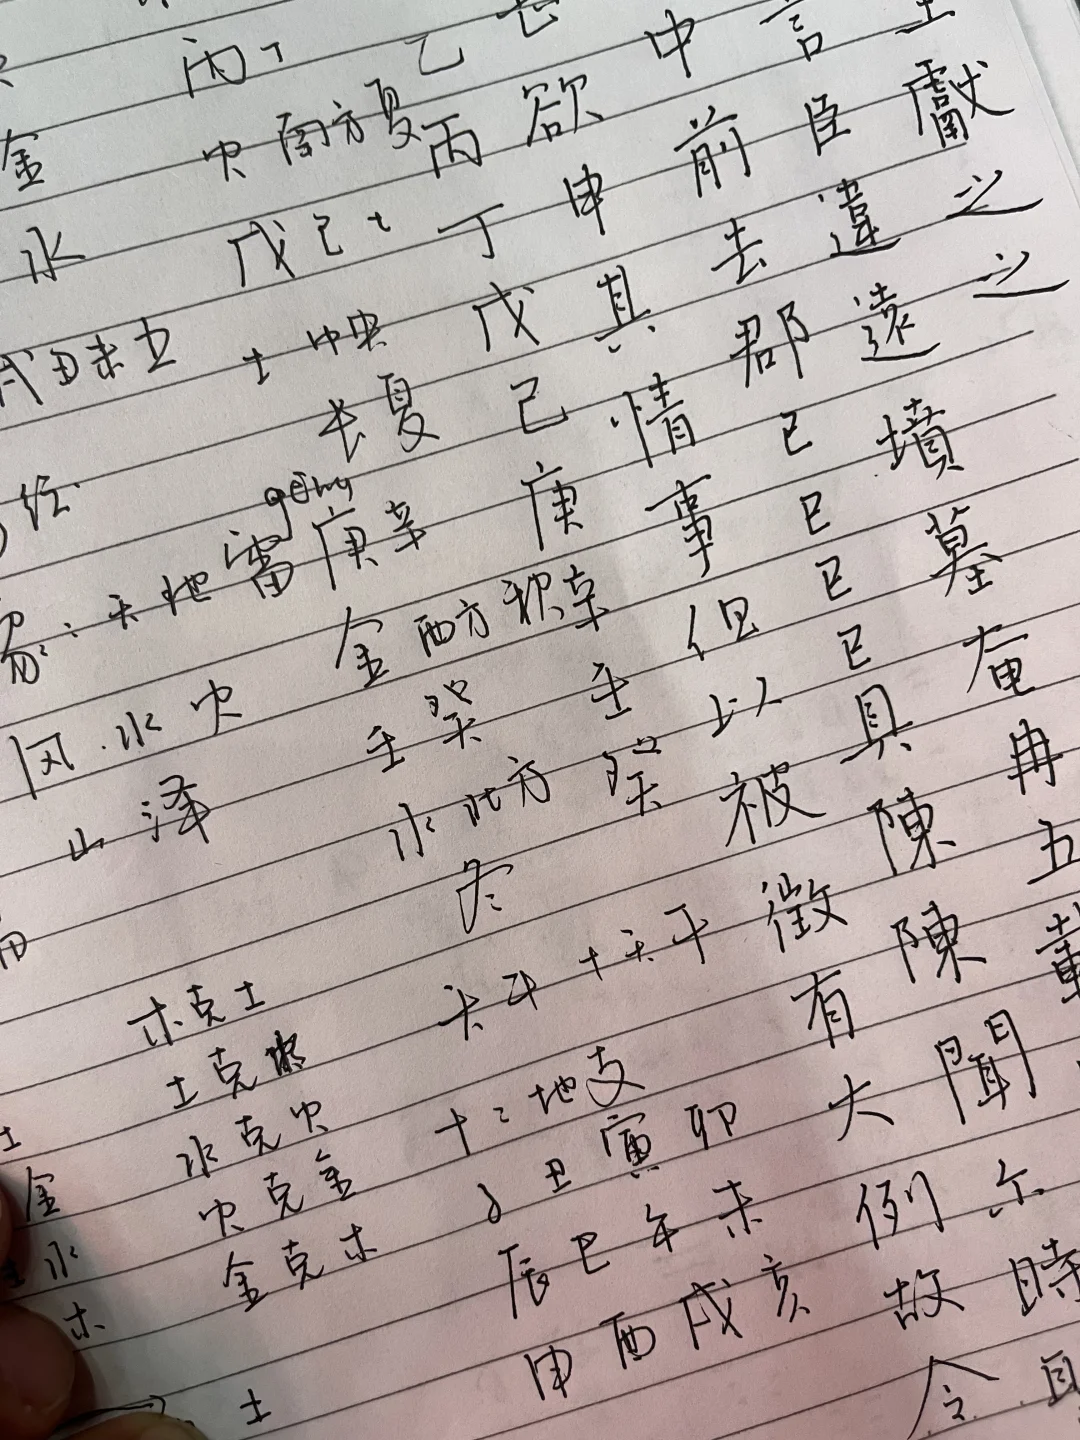 丙丁 乙
金 火 南方夏 丙 欲 中 言
水 戊己土 丁 申 前 臣 獻
戌丑未 土 中央 戊 其 去 違 之
长夏 己 情 郡 遠 之
geng
天地雷 庚辛 庚 事 已 墳
金 西方秋 辛 但 已 墓
风 水 火 壬癸 壬 以 已 奄
山 泽 水北方 癸 被 具 冉
冬 徵 陳 五
木克土 天干 十天干 有 陳
土克水 十二地支 大 聞
水克火 子 丑 寅 卯 例 尔
火克金 辰 巳 午 未 故 時
金克木 申 酉 戌 亥 令
金
水
木
土